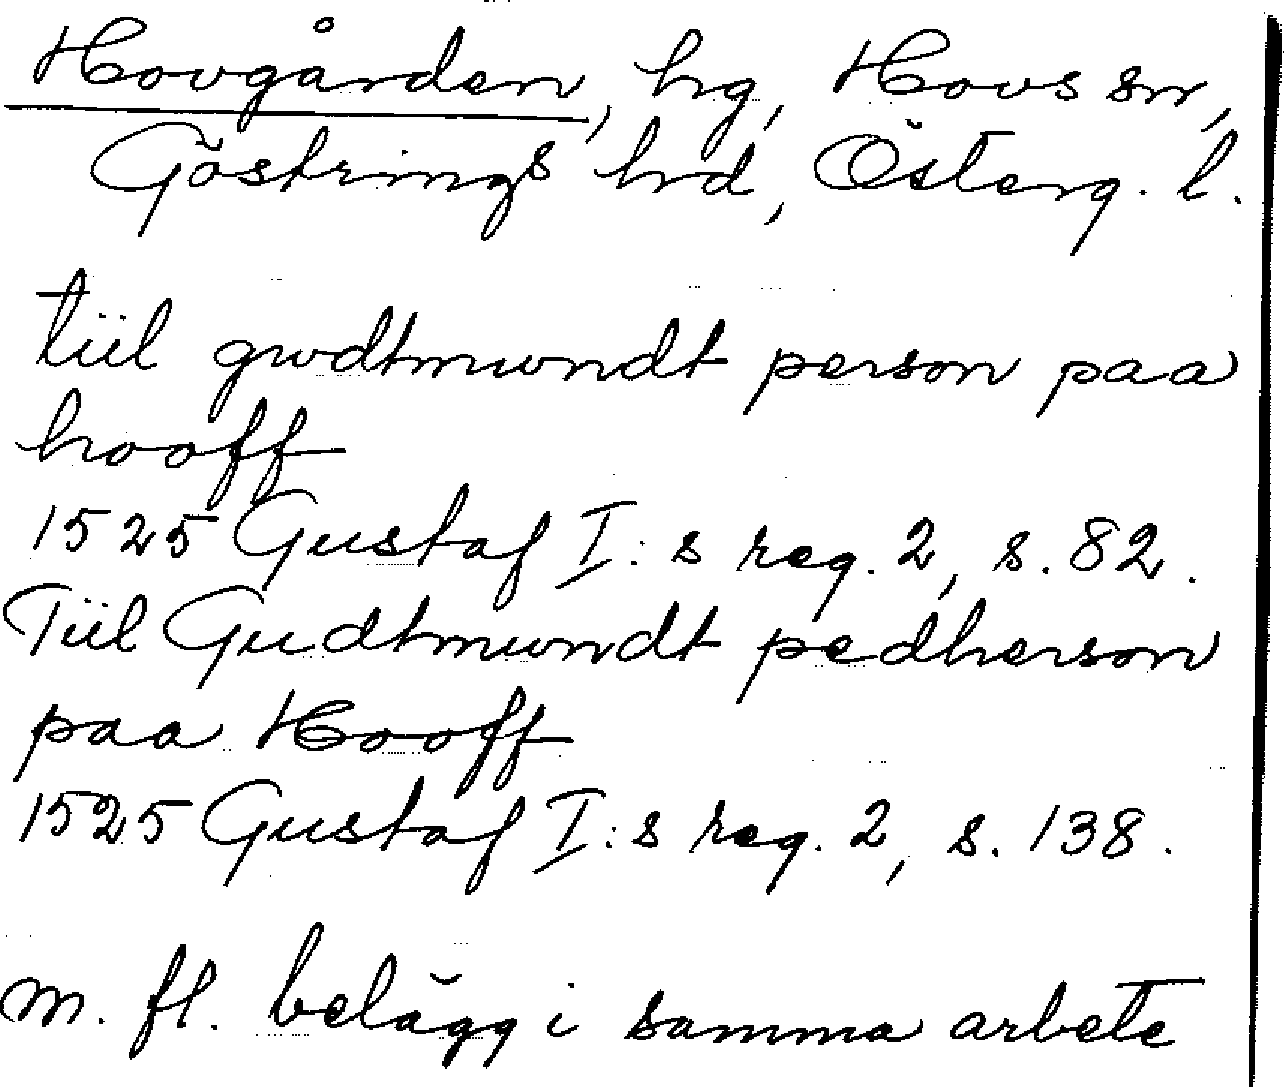 Hovgården, hg, Hovs sn,
Göstrings hd, Österg. l.
tiil gwdtmwndt person paa
hooff
1525 Gustaf I:s reg. 2, s. 82.
Tiil Gudtmwndt pedherson
paa Hooff
1525 Gustaf I:s reg. 2, s. 138.
m. fl. belägg i samma arbete